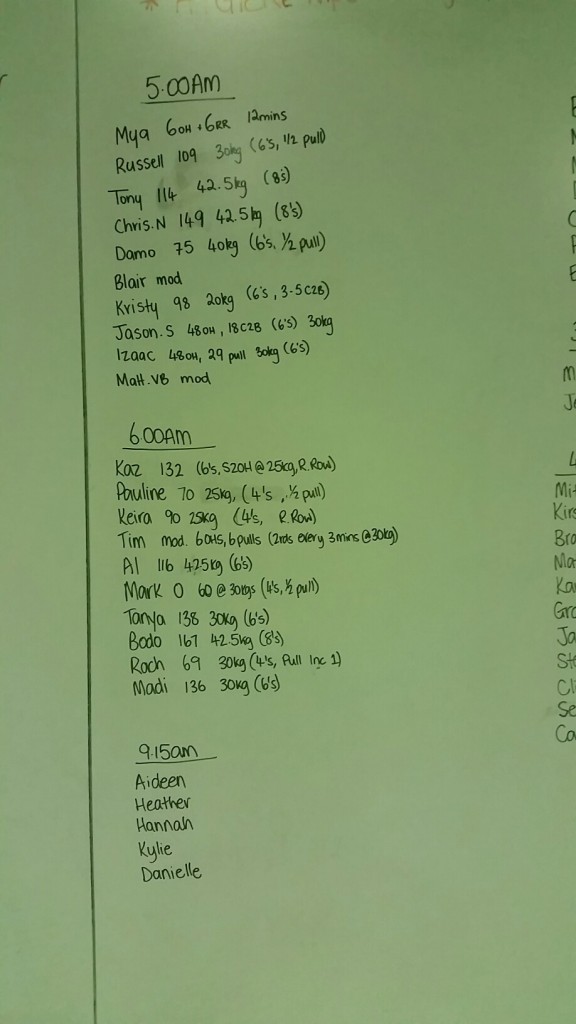 5.00AM
Mya 6OH + 6RR 12mins
Russell 109 30kg (6's, 1/2 pull)
Tony 114 42.5kg (8's)
Chris.N 149 42.5kg (8's)
Damo 75 40kg (6's, 1/2 pull)
Blair mod
Kristy 98 20kg (6's, 3-5 C2B)
Jason.S 48OH, 18C2B (6's) 30kg
Izaac 48OH, 29 pull 30kg (6's)
Matt.VB mod
6.00AM
Kaz 132 (6's, S2OH @ 25kg, R.Row)
Pauline 70 25kg, (4's, 1/2 pull)
Keira 90 25kg (4's, R.Row)
Tim mod. 6OHS, 6 pulls (2rds every 3mins @30kg)
Al 116 42.5kg (6's)
Mark O 60 @ 30kgs (4's, 1/2 pull)
Tanya 138 30kg (6's)
Bodo 167 42.5kg (8's)
Rach 69 30kg (4's, Pull Inc 1)
Madi 136 30kg (6's)
9.15am
Aideen
Heather
Hannah
Kylie
Danielle